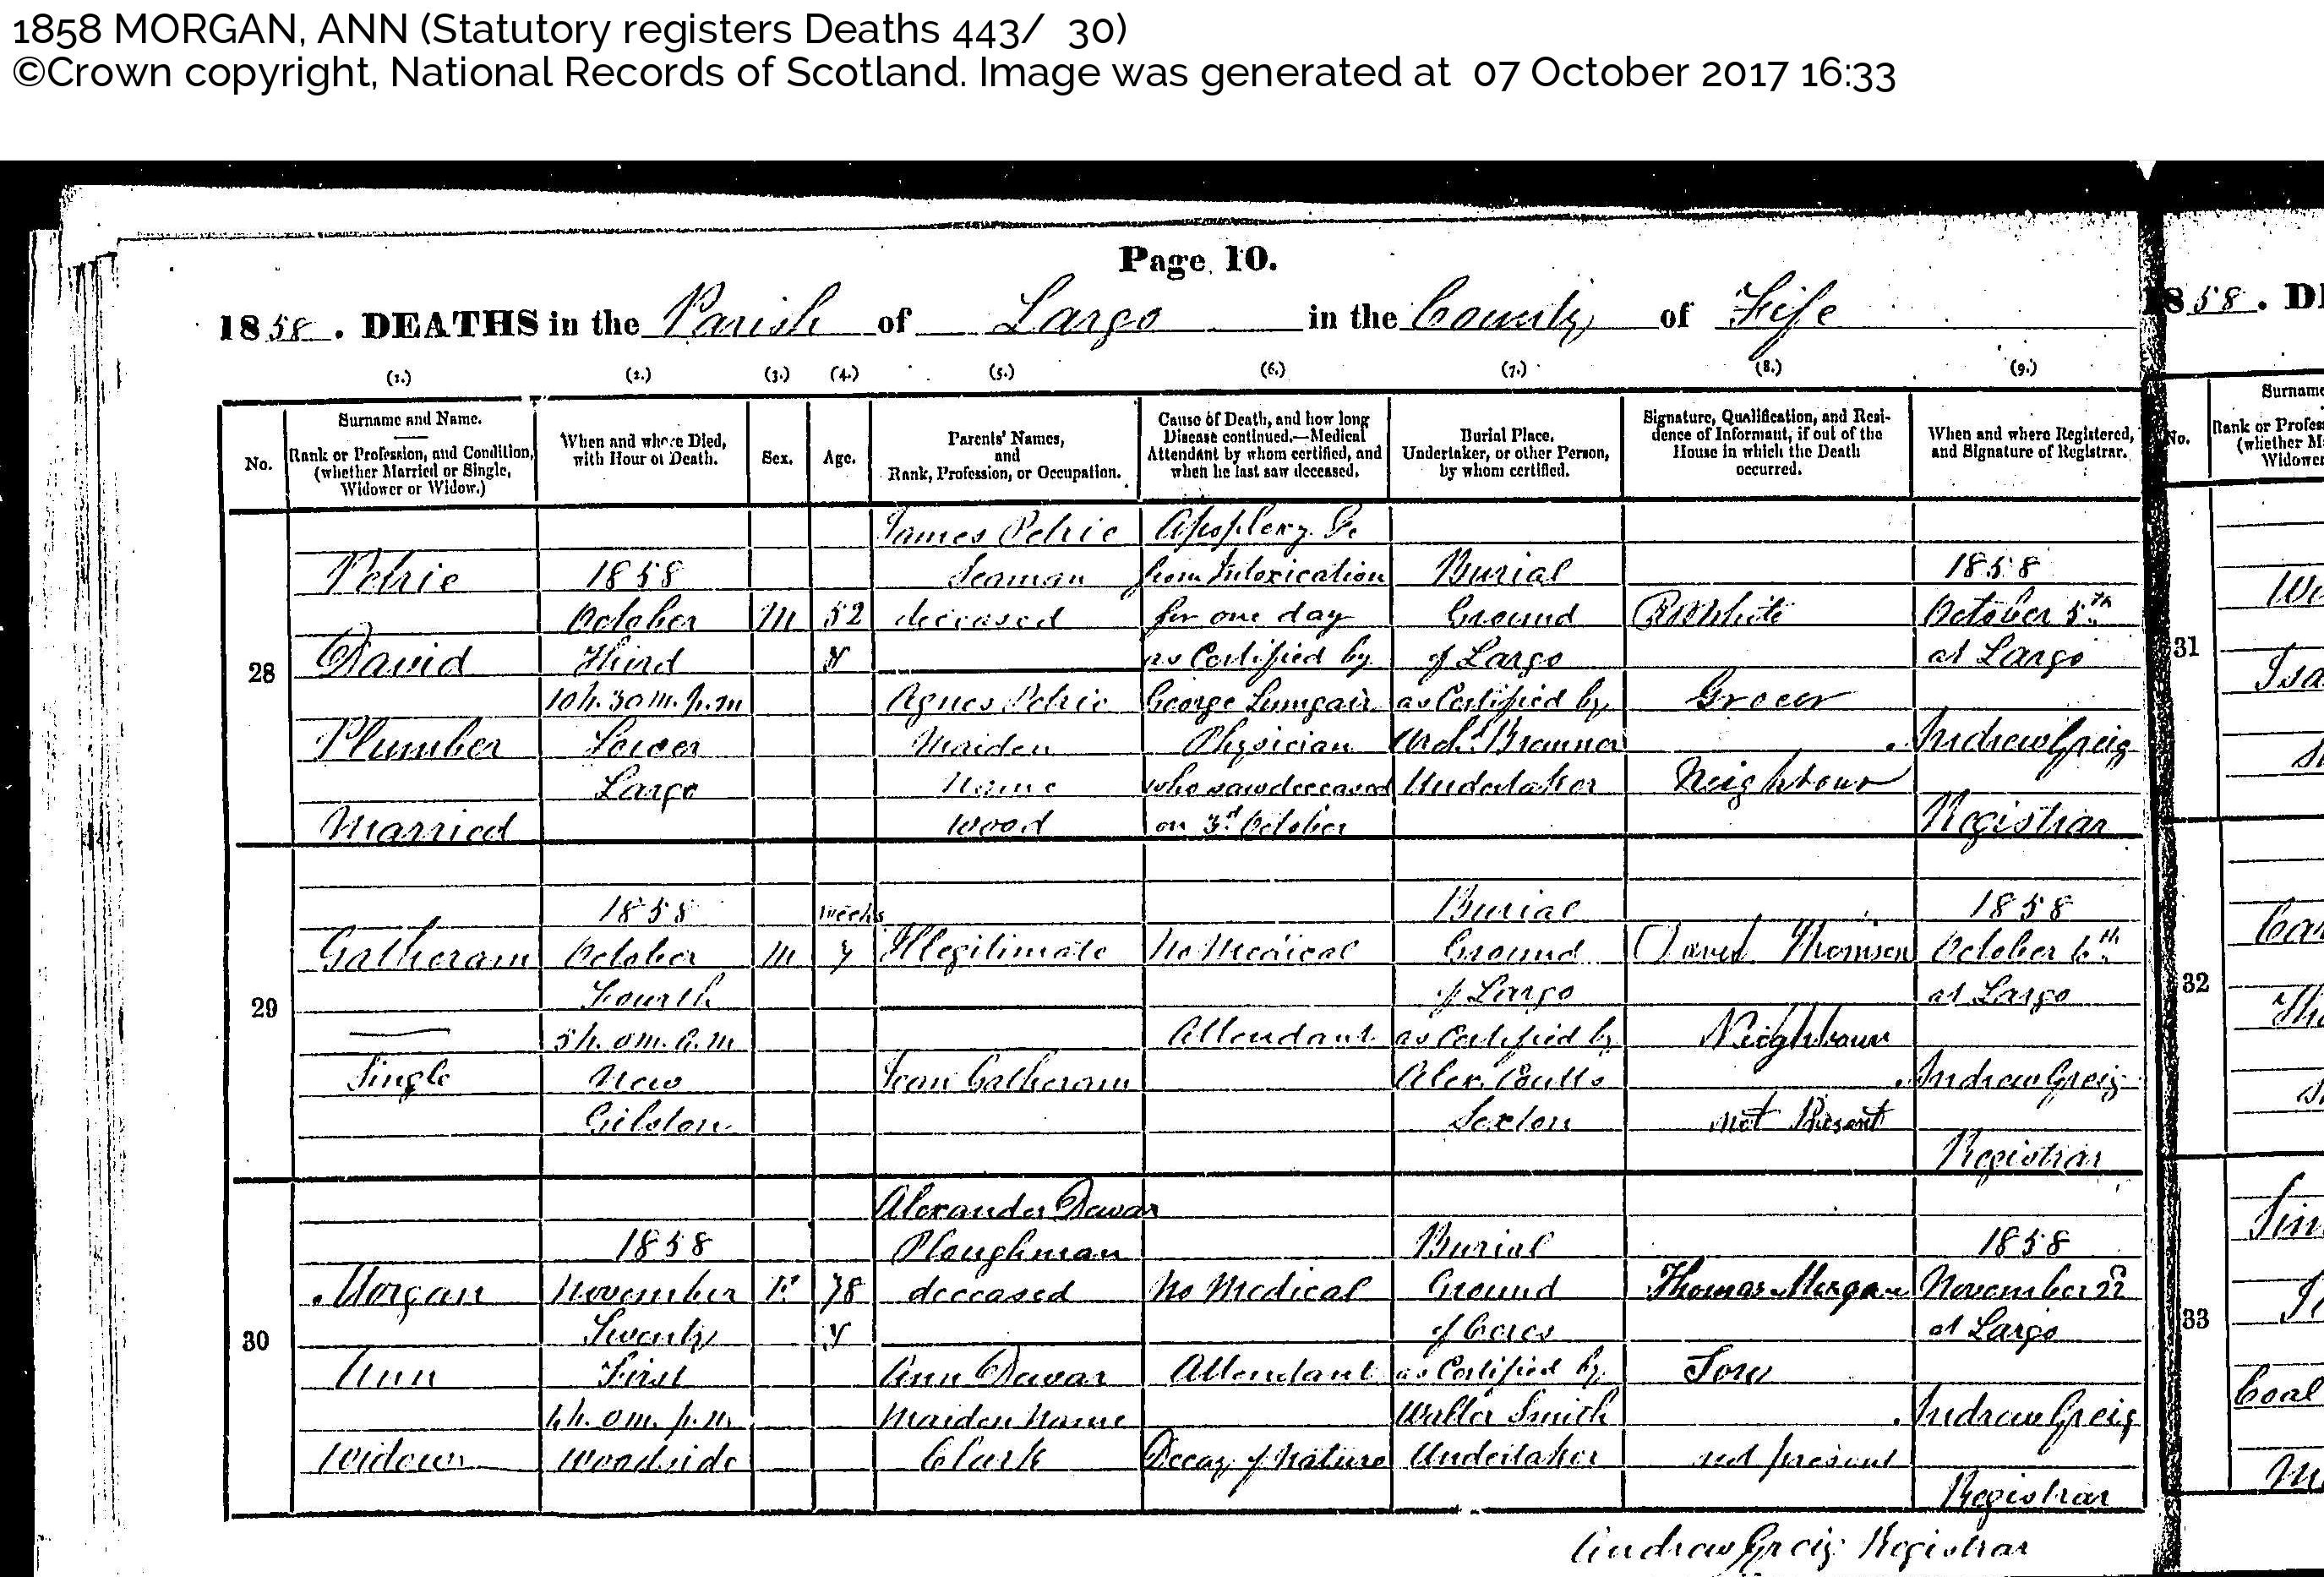 1858 MORGAN, ANN (Statutory registers Deaths 443/ 30)
©Crown copyright, National Records of Scotland. Image was generated at 07 October 2017 16:33
Page 10.
1858. DEATHS in the Parish of Largo in the County of Fife
1858. DE
(1.) (2.) (3.) (4.) (5.) (6.) (7.) (8.) (9.)
No.
Surname and Name.
Rank or Profession, and Condition,
(whether Married or Single,
Widower or Widow.)
When and where Died,
with Hour of Death.
Sex.
Age.
Parents' Names,
and
Rank, Profession, or Occupation.
Cause of Death, and how long
Disease continued.—Medical
Attendant by whom certified, and
when he last saw deceased.
Burial Place.
Undertaker, or other Person,
by whom certified.
Signature, Qualification, and Resi-
dence of Informant, if out of the
House in which the Death
occurred.
When and where Registered,
and Signature of Registrar.
28
Petrie
David
Plumber
Married
1858
October
Third
10h. 30m. p.m
Lower
Largo
M
52
y
James Petrie
Seaman
deceased
Agnes Petrie
Maiden
Name
Wood
Apoplexy &c
from Intoxication
for one day
as Certified by
George Lumgair
Physician
who saw deceased
on 3rd October
Burial
Ground
of Largo
as Certified by
Undertaker
Grocer
Neighbour
1858
October 5th
at Largo
Andrew Greig
Registrar
29
Gatheram
Single
1858
October
Fourth
5h. 0m. a.m
New
Gilston
M
weeks
Illegitimate
Jean Gatheram
No Medical
Attendant
Burial
Ground
of Largo
as Certified by
Alex. Coutts
Sexton
David Thomson
Neighbour
not Present
1858
October 6th
at Largo
Andrew Greig
Registrar
30
Morgan
Ann
Widow
1858
November
Twenty
First
h. 0m. p.m.
Woodside
F
78
y
Alexander Dewar
Ploughman
deceased
Ann Dewar
Maiden Name
Clark
No Medical
Attendant
Decay of Nature
Burial
Ground
of Ceres
as Certified by
Walter Smith
Undertaker
Thomas Morgan
Son
not present
1858
November 22
at Largo
Andrew Greig
Registrar
Andrew Greig Registrar
No.
Surname
Rank or Profess
(whether M
Widower
31
32
33
Coal